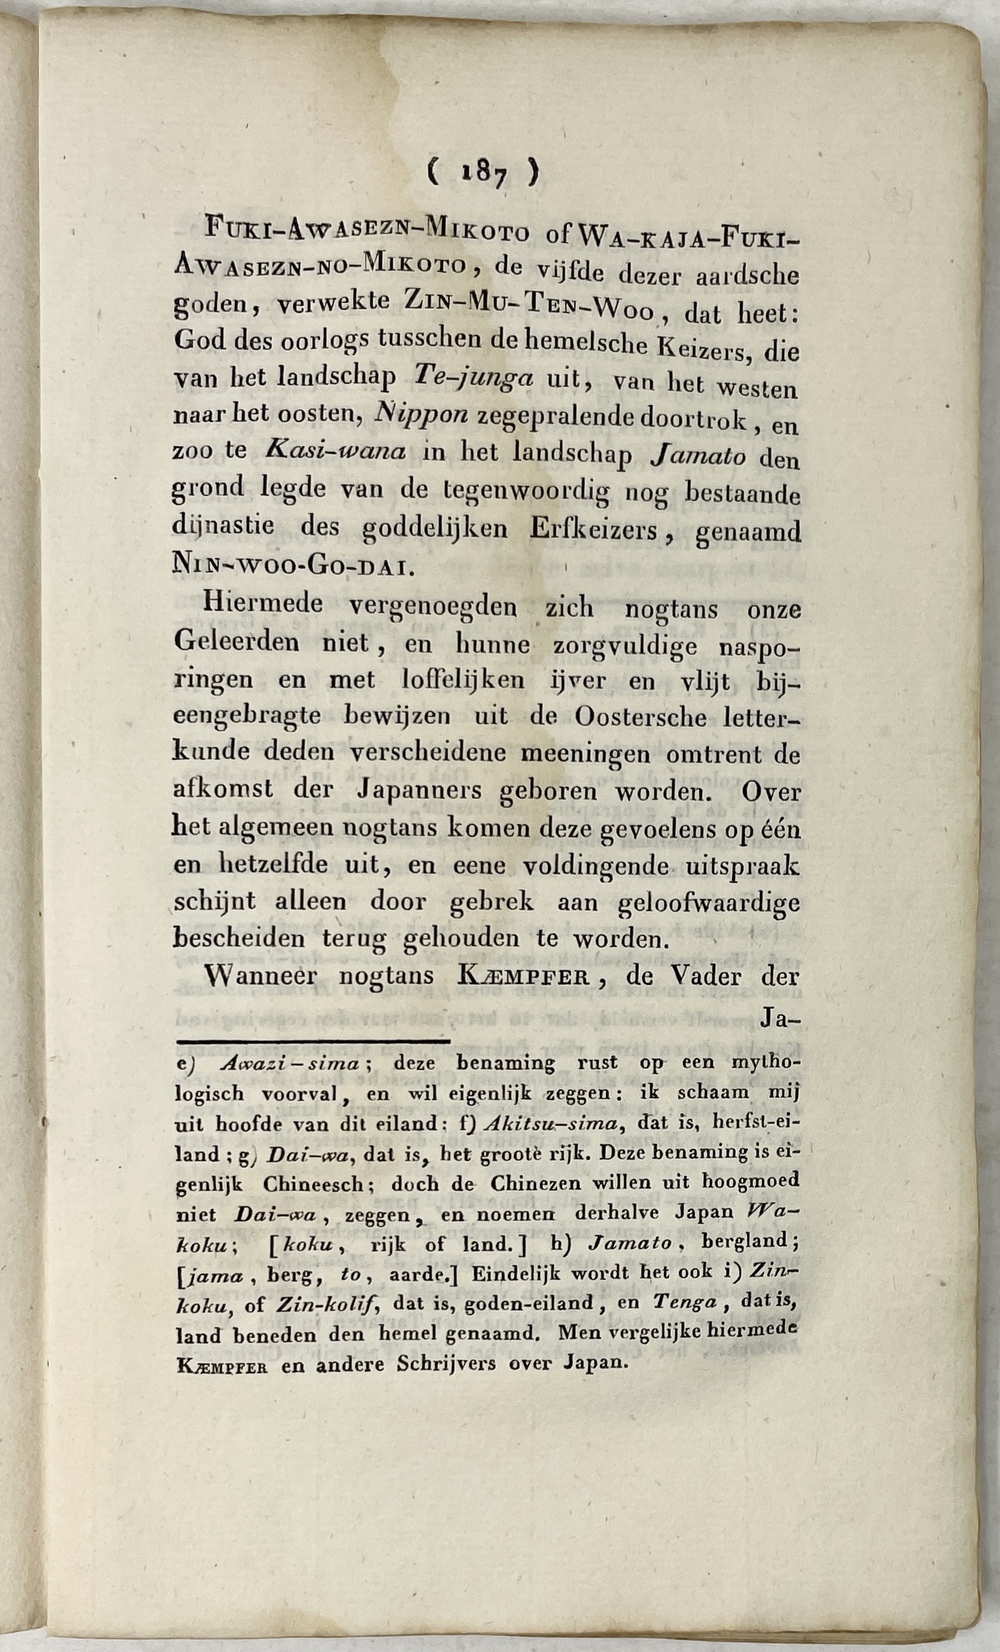 ( 187 )
Fuki-Awasezn-Mikoto of Wa-kaja-Fuki-
Awasezn-no-Mikoto, de vijfde dezer aardsche
goden, verwekte Zin-Mu-Ten-Woo, dat heet:
God des oorlogs tusschen de hemelsche Keizers, die
van het landschap Te-junga uit, van het westen
naar het oosten, Nippon zegepralende doortrok, en
zoo te Kasi-wana in het landschap Jamato den
grond legde van de tegenwoordig nog bestaande
dijnastie des goddelijken Erfkeizers, genaamd
Nin-woo-Go-dai.
Hiermede vergenoegden zich nogtans onze
Geleerden niet, en hunne zorgvuldige naspo-
ringen en met loffelijken ijver en vlijt bij-
eengebragte bewijzen uit de Oostersche letter-
kunde deden verscheidene meeningen omtrent de
afkomst der Japanners geboren worden. Over
het algemeen nogtans komen deze gevoelens op één
en hetzelfde uit, en eene voldingende uitspraak
schijnt alleen door gebrek aan geloofwaardige
bescheiden terug gehouden te worden.
Wanneer nogtans Kæmpfer, de Vader der
Ja-
e) Awazi-sima; deze benaming rust op een mytho-
logisch voorval, en wil eigenlijk zeggen: ik schaam mij
uit hoofde van dit eiland: f) Akitsu-sima, dat is, herfst-ei-
land; g) Dai-wa, dat is, het groote rijk. Deze benaming is ei-
genlijk Chineesch; doch de Chinezen willen uit hoogmoed
niet Dai-wa, zeggen, en noemen derhalve Japan Wa-
koku; [koku, rijk of land.] h) Jamato, bergland;
[jama, berg, to, aarde.] Eindelijk wordt het ook i) Zin-
koku, of Zin-kolif, dat is, goden-eiland, en Tenga, dat is,
land beneden den hemel genaamd. Men vergelijke hiermede
Kæmpfer en andere Schrijvers over Japan.